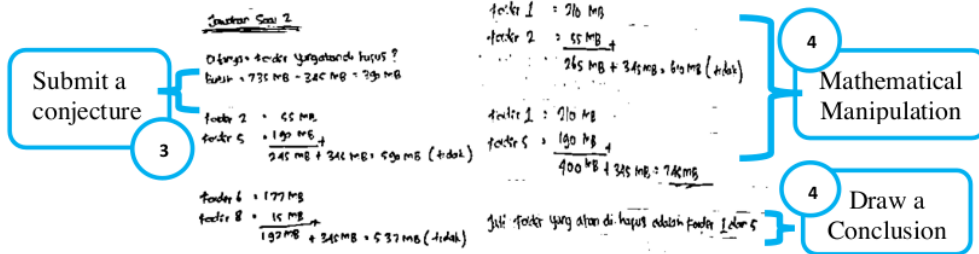 Jawaban Soal 2
Submit a
conjecture
3
folder yang akan di hapus ?
Butuh = 735 MB - 345 MB = 390 MB
folder 2 = 55 MB
folder 5 = 190 MB +
245 MB + 345 MB = 590 MB (tidak)
folder 6 = 177 MB
folder 8 = 15 MB +
192 MB + 345 MB = 537 MB (tidak)
folder 1 = 210 MB
folder 2 = 55 MB +
265 MB + 345 MB = 610 MB (tidak)
folder 1 = 210 MB
folder 5 = 190 MB +
400 MB + 345 MB = 745 MB
Jadi folder yang akan di hapus adalah folder 1 dan 5
4
Mathematical
Manipulation
4
Draw a
Conclusion